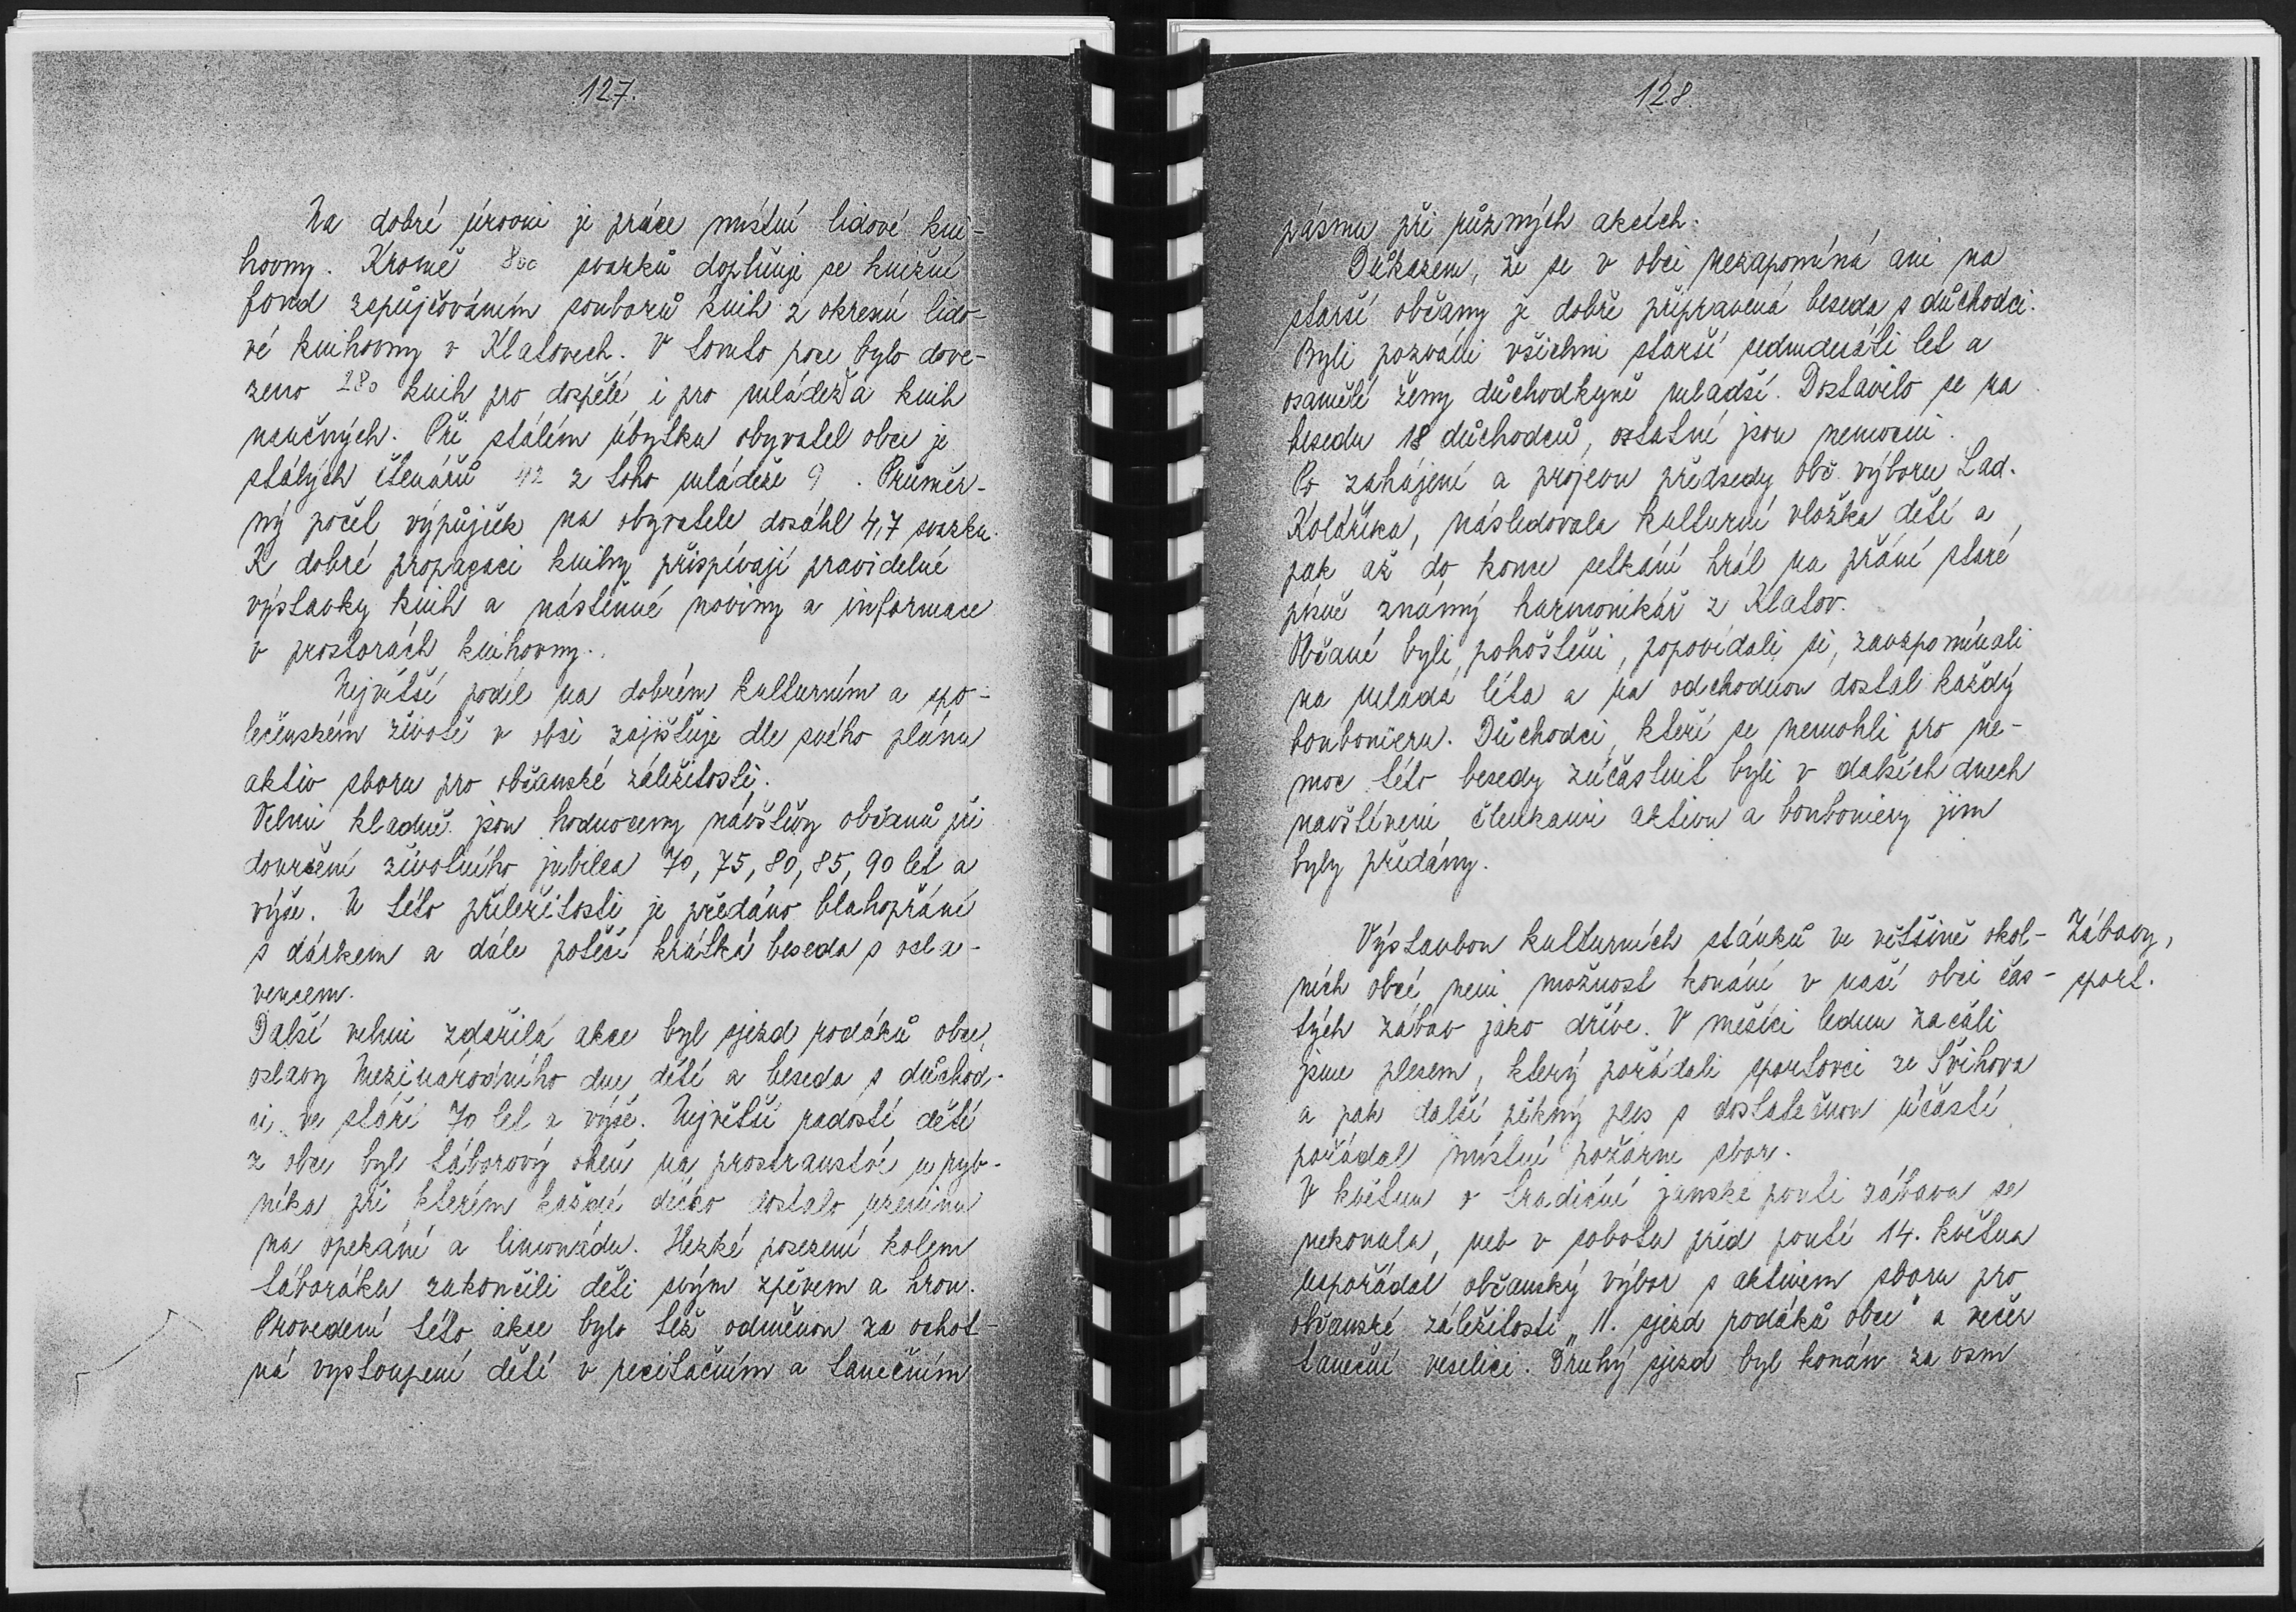 127.
Na dobré úrovni je práce místní lidové kni-
hovny. Kromě 800 svazků doplňuje se knižní
fond zapůjčováním souborů knih z okresní lido-
vé knihovny v Klatovech. V tomto roce bylo dove-
zeno 280 knih pro dospělé i pro mládež a knih
naučných. Při stálém úbytku obyvatel obce je
stálých čtenářů 42 z toho mládeže 9. Průměr-
ný počet výpůjček na obyvatele dosáhl 4,7 svazku.
K dobré propagaci knihy přispívají pravidelné
výstavky knih a nástěnné noviny a informace
v prostorách knihovny.
Největší podíl na dobrém kulturním a spo-
lečenském životě v obci zajišťuje dle svého plánu
aktiv sboru pro občanské záležitosti.
Velmi kladně jsou hodnoceny návštěvy občanů při
dovršení životního jubilea 70, 75, 80, 85, 90 let a
výše. U této příležitosti je předáno blahopřání
s dárkem a dále potěší krátká beseda s osla-
vencem.
Další velmi zdařilá akce byl sjezd rodáků obce,
oslavy Mezinárodního dne dětí a beseda s důchod-
ci ve stáří 70 let a výše. Největší radostí dětí
z obce byl táborový oheň na prostranství u ryb-
níka při kterém každé děcko dostalo uzeninu
na opekání a limonádu. Hezké posezení kolem
táboráku zakončili děti svým zpěvem a hrou.
Provedení této akce bylo též odměnou za ochot-
ná vystoupení dětí v recitačním a tanečním
128.
pásmu při různých akcích.
Důkazem, že se v obci nezapomíná ani na
starší občany je dobře připravená beseda s důchodci.
Byli pozváni všichni starší sedmdesáti let a
osamělé ženy důchodkyně mladší. Dostavilo se na
besedu 18 důchodců, ostatní jsou nemocni.
Po zahájení a projevu předsedy obč. výboru Lad.
Koláříka, následovala kulturní vložka dětí a
pak až do konce setkání hrál na přání staré
písně známý harmonikář z Klatov.
Občané byli pohoštěni, popovídali si, zavzpomínali
na mladá léta a na odchodnou dostal každý
bonbonieru. Důchodci, kteří se nemohli pro ne-
moc této besedy zúčastnit byli v dalších dnech
navštíveni členkami aktivu a bonboniery jim
byly předány.
Výstavbou kulturních stánků ve většině okol-
Zábavy,
ních obcí není možnost konání v naší obci čas-
sport.
tých zábav jako dříve. V měsíci lednu začali
jsme plesem, který pořádali sportovci ze Švihova
a pak další pěkný ples s dostatečnou účastí
pořádal místní požární sbor.
V květnu o tradiční janské pouti zábava se
nekonala, neb v sobotu před poutí 14. května
uspořádal občanský výbor s aktivem sboru pro
občanské záležitosti „II. sjezd rodáků obce" a večer
taneční veselici. Druhý sjezd byl konán za osm